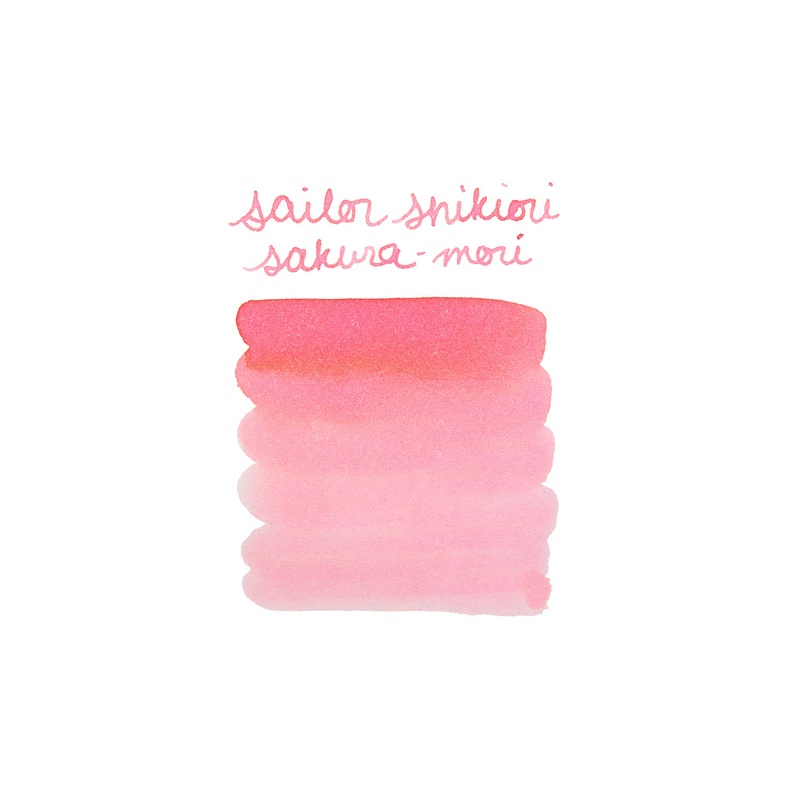 sailor shikiori
sakura-mori